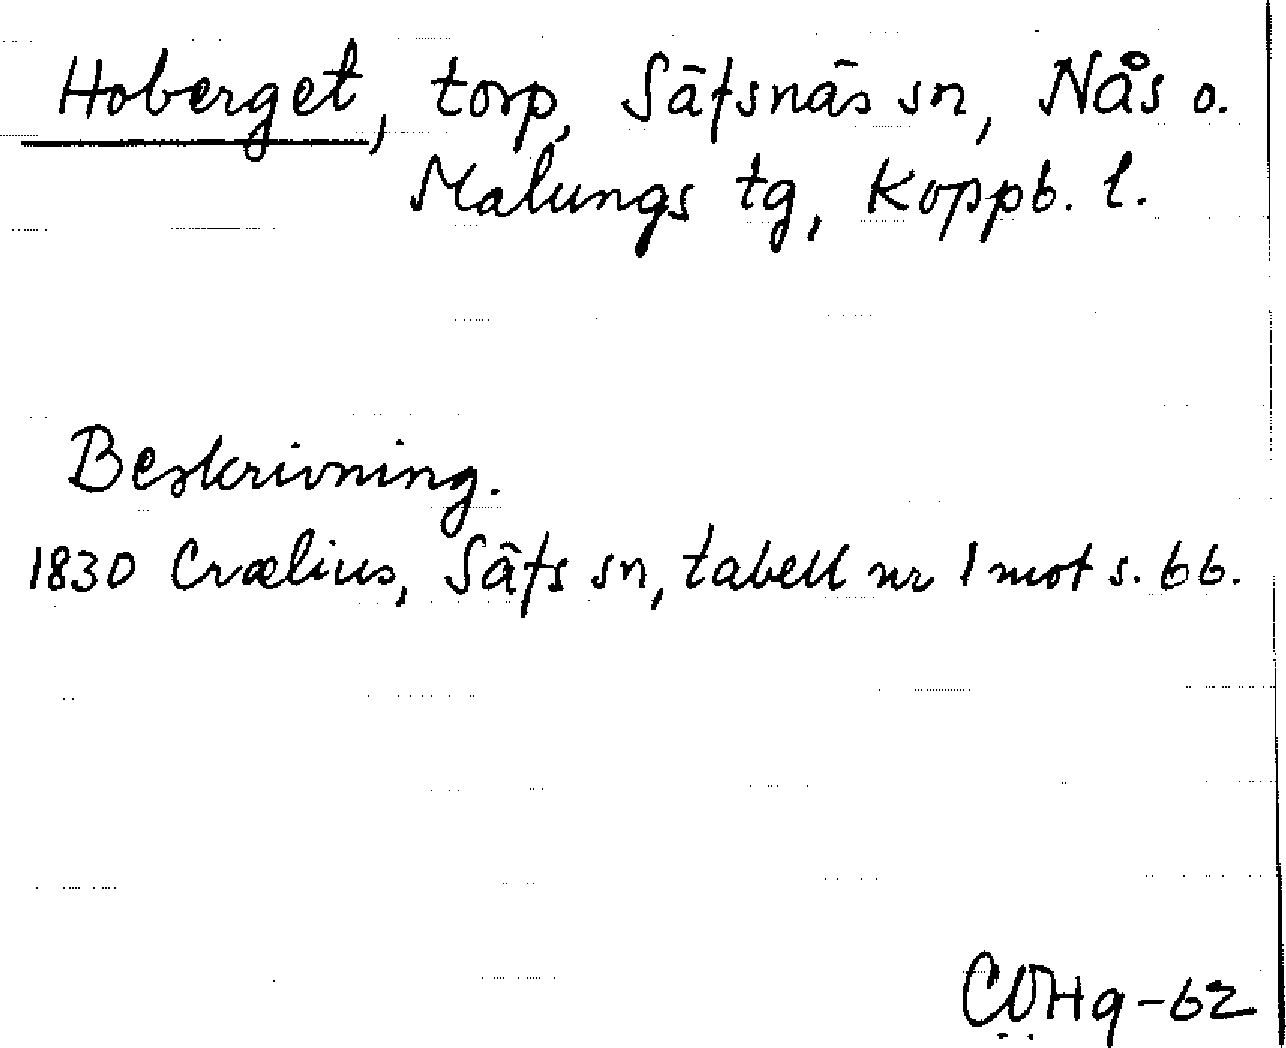 Hoberget, torp, Säfsnäs sn, Nås o.
Malungs tg, Koppb. l.
Beskrivning.
1830 Crælius, Säfs sn, tabell nr 1 mot s. 66.